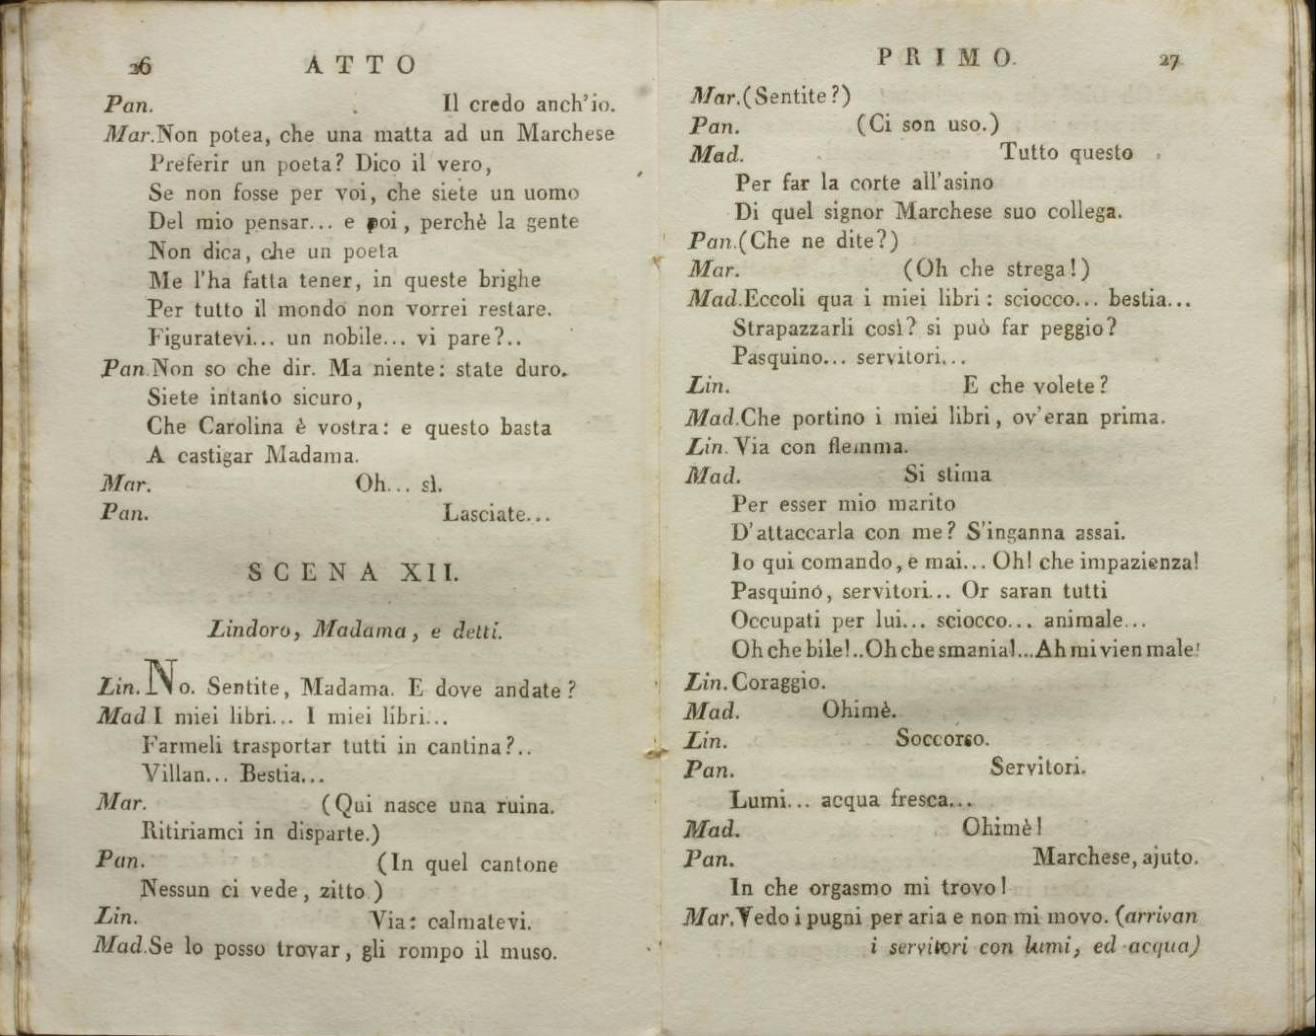 26 ATTO
Pan. Il credo anch'io.
Mar. Non potea, che una matta ad un Marchese
Preferir un poeta? Dico il vero,
Se non fosse per voi, che siete un uomo
Del mio pensar... e poi, perchè la gente
Non dica, che un poeta
Me l'ha fatta tener, in queste brighe
Per tutto il mondo non vorrei restare.
Figuratevi... un nobile... vi pare?..
Pan. Non so che dir. Ma niente: state duro.
Siete intanto sicuro,
Che Carolina è vostra: e questo basta
A castigar Madama.
Mar. Oh... sì.
Pan. Lasciate...
SCENA XII.
Lindoro, Madama, e detti.
Lin. No. Sentite, Madama. E dove andate?
Mad I miei libri... I miei libri...
Farmeli trasportar tutti in cantina?..
Villan... Bestia...
Mar. (Qui nasce una ruina.
Ritiriamci in disparte.)
Pan. (In quel cantone
Nessun ci vede, zitto.)
Lin. Via: calmatevi.
Mad. Se lo posso trovar, gli rompo il muso.
PRIMO. 27
Mar. (Sentite?)
Pan. (Ci son uso.)
Mad. Tutto questo
Per far la corte all'asino
Di quel signor Marchese suo collega.
Pan. (Che ne dite?)
Mar. (Oh che strega!)
Mad. Eccoli qua i miei libri: sciocco... bestia...
Strapazzarli così? si può far peggio?
Pasquino... servitori...
Lin. E che volete?
Mad. Che portino i miei libri, ov'eran prima.
Lin. Via con flemma.
Mad. Si stima
Per esser mio marito
D'attaccarla con me? S'inganna assai.
Io qui comando, e mai... Oh! che impazienza!
Pasquino, servitori... Or saran tutti
Occupati per lui... sciocco... animale...
Oh che bile!.. Oh che smania!... Ah mi vien male!
Lin. Coraggio.
Mad. Ohimè.
Lin. Soccorso.
Pan. Servitori.
Lumi... acqua fresca...
Mad. Ohimè!
Pan. Marchese, ajuto.
In che orgasmo mi trovo!
Mar. Vedo i pugni per aria e non mi movo. (arrivan
i servitori con lumi, ed acqua)